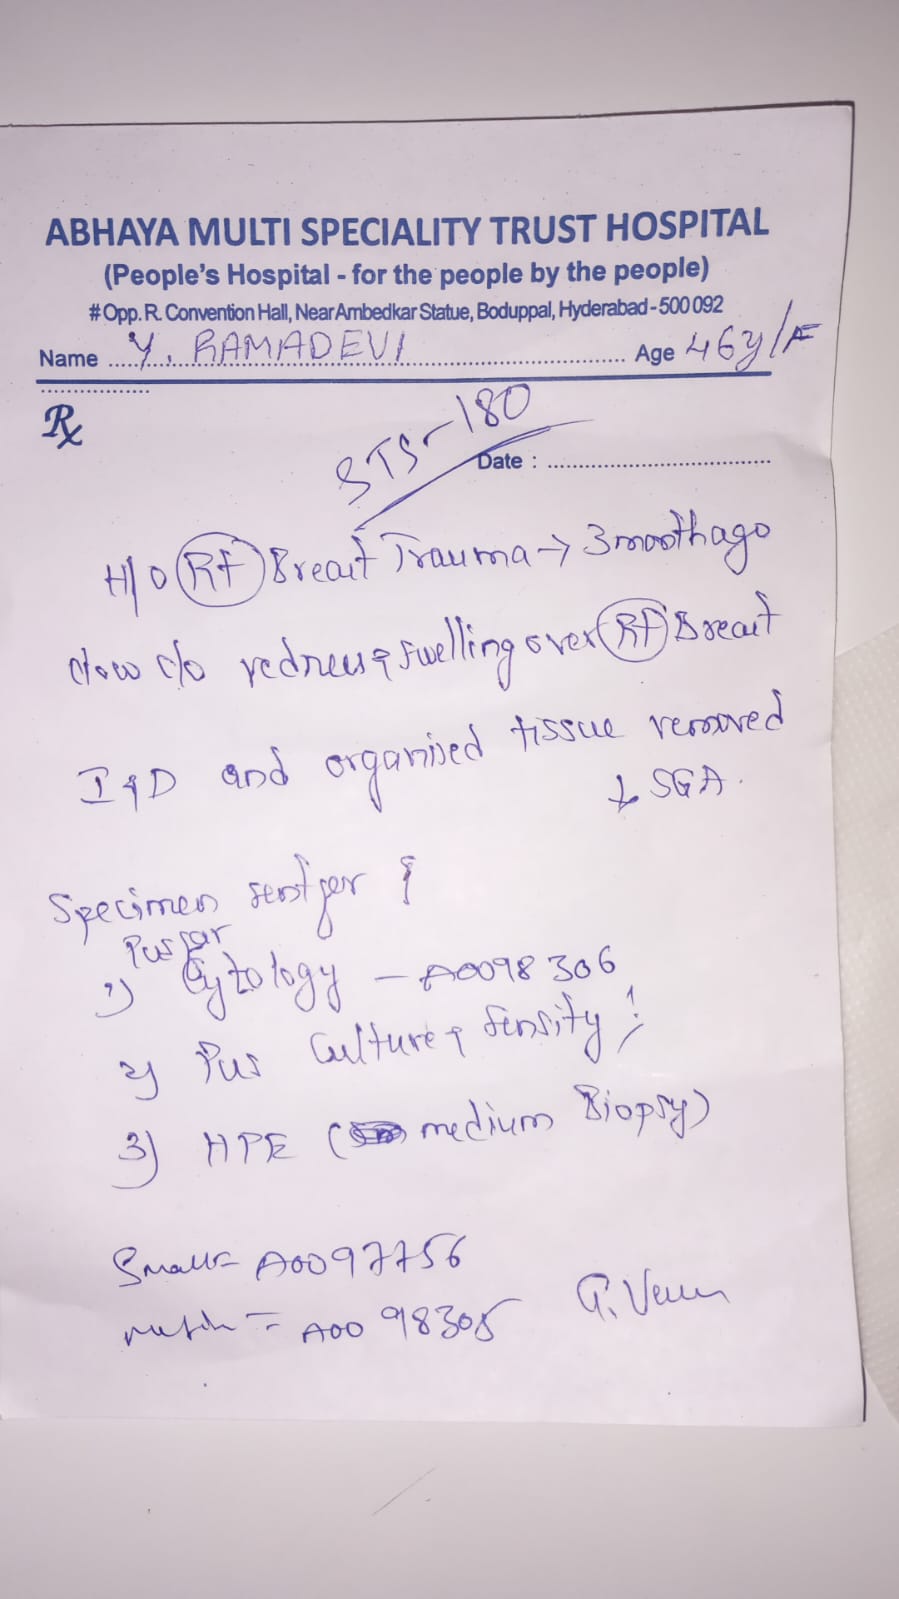 ABHAYA MULTI SPECIALITY TRUST HOSPITAL
(People's Hospital - for the people by the people)
# Opp. R. Convention Hall, Near Ambedkar Statue, Boduppal, Hyderabad - 500 092
Name Y. RAMADEVI Age 46y/F
Rx
STS-180
Date :
H/o Rt Breast Trauma → 3 month ago
Now c/o redness & swelling over Rt Breast
I & D and organised tissue removed
SGA.
Specimen sent for
Pus for
1) Cytology - A0098306
2) Pus Culture & Sensity
3) HPE ( medium Biopsy)
Small = A0097756
= A0098305
G.